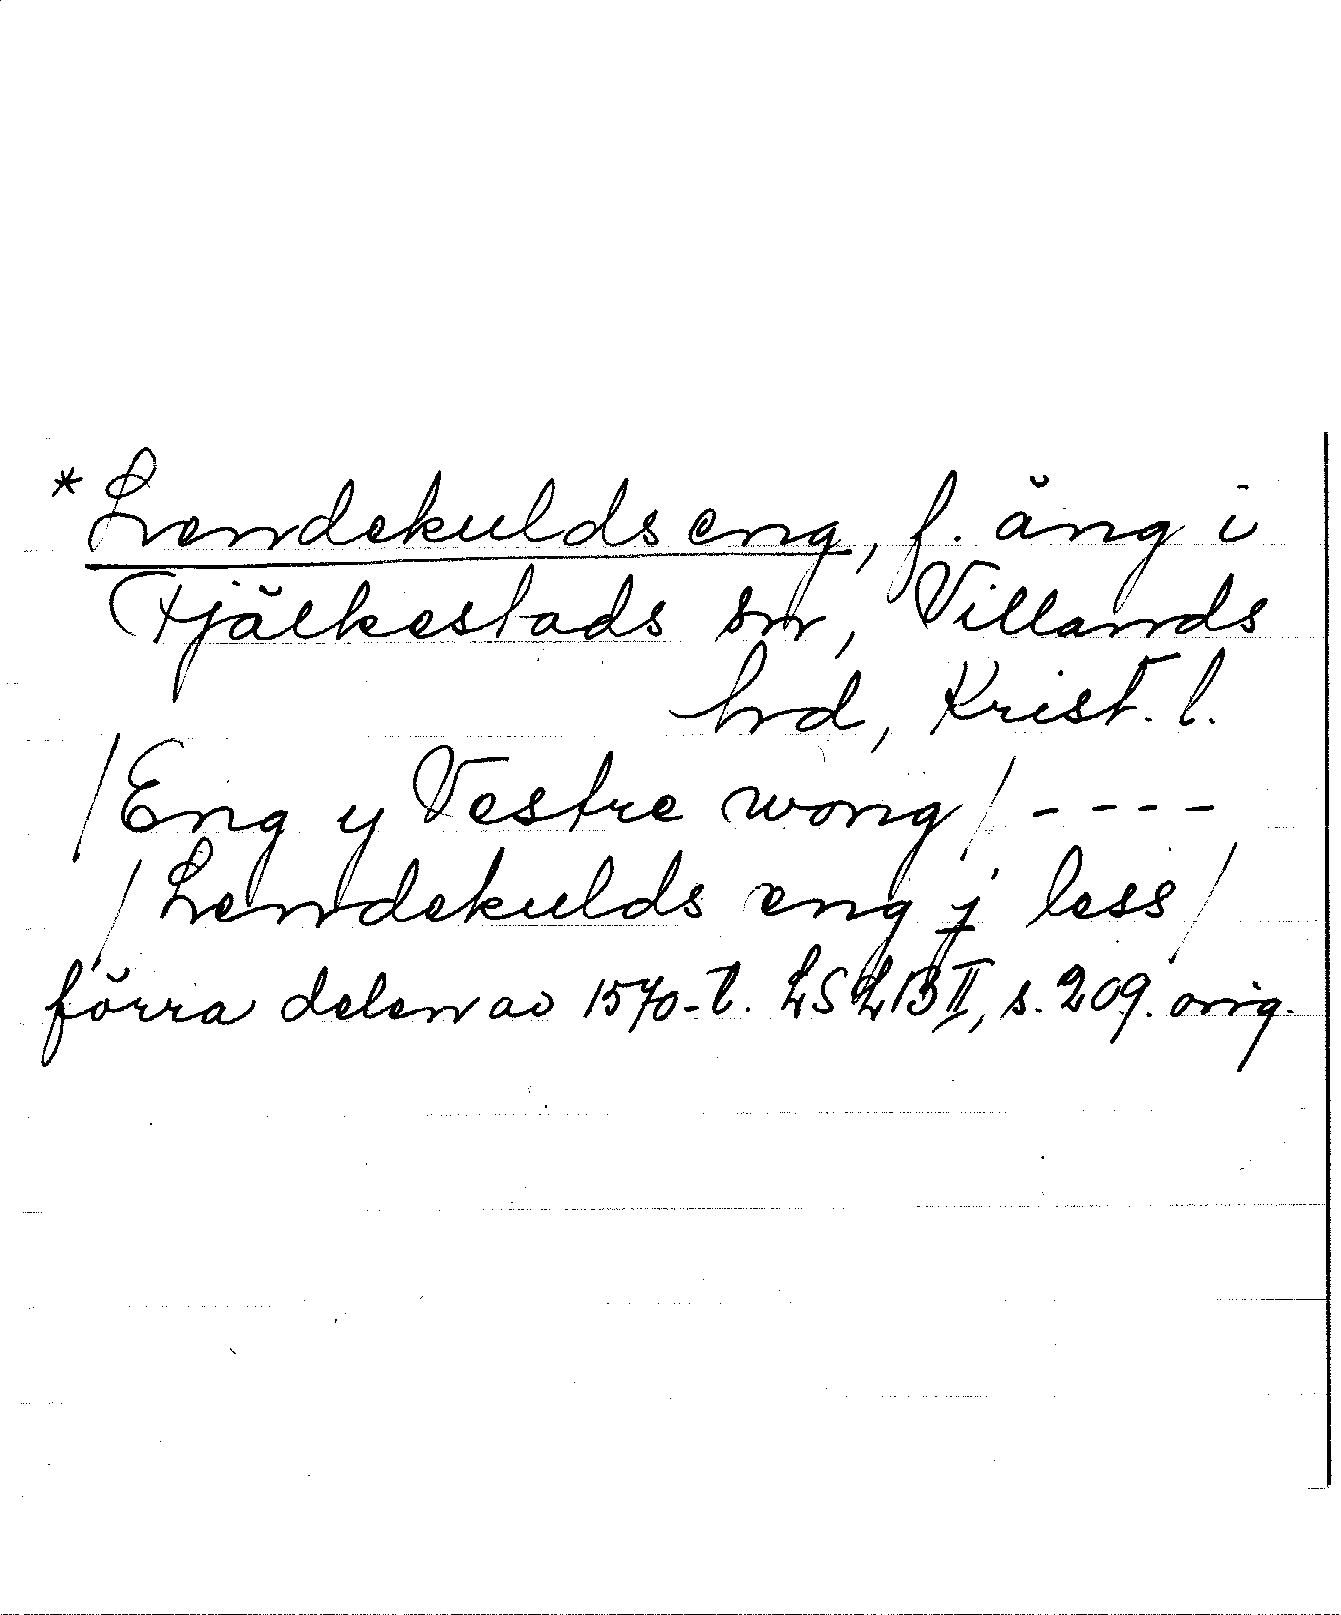 *Lendekulds eng, f. äng i
Fjälkestads sn, Villands
hrd, Krist. l.
/Eng y Vestre wong/ ----
/Lendekulds eng j less/
förra delen av 1570-t. LSLB II, s. 209. orig.